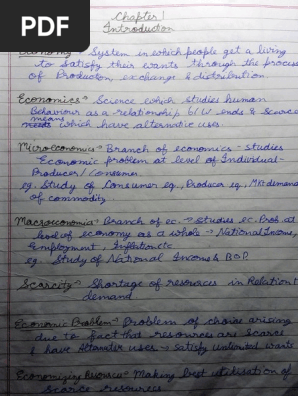 PDF
Chapter 1
Introduction
Economy → System in which people get a living
to satisfy their wants through the process
of Production, exchange & distribution
Economics → Science which studies human
Behaviour as a relationship b/w ends & Scarce
means
needs which have alternative uses.
Microeconomics → Branch of economics - studies
Economic problem at level of Individual-
Producer / Consumer.
eg. Study of Consumer eq., Producer eq., Mkt demand
of commodity
Macroeconomics → Branch of ec. → Studies ec. Prob. at
level of economy as a whole → National Income,
Employment, Inflation etc
eg. Study of National Income & BOP
Scarcity → Shortage of resources in Relation t
demand
Economic Problem → Problem of choice arising
due to fact that resources are Scarce
& have Alternative uses → Satisfy Unlimited wants
Economizing Resources → Making best utilisation of
Scarce resources